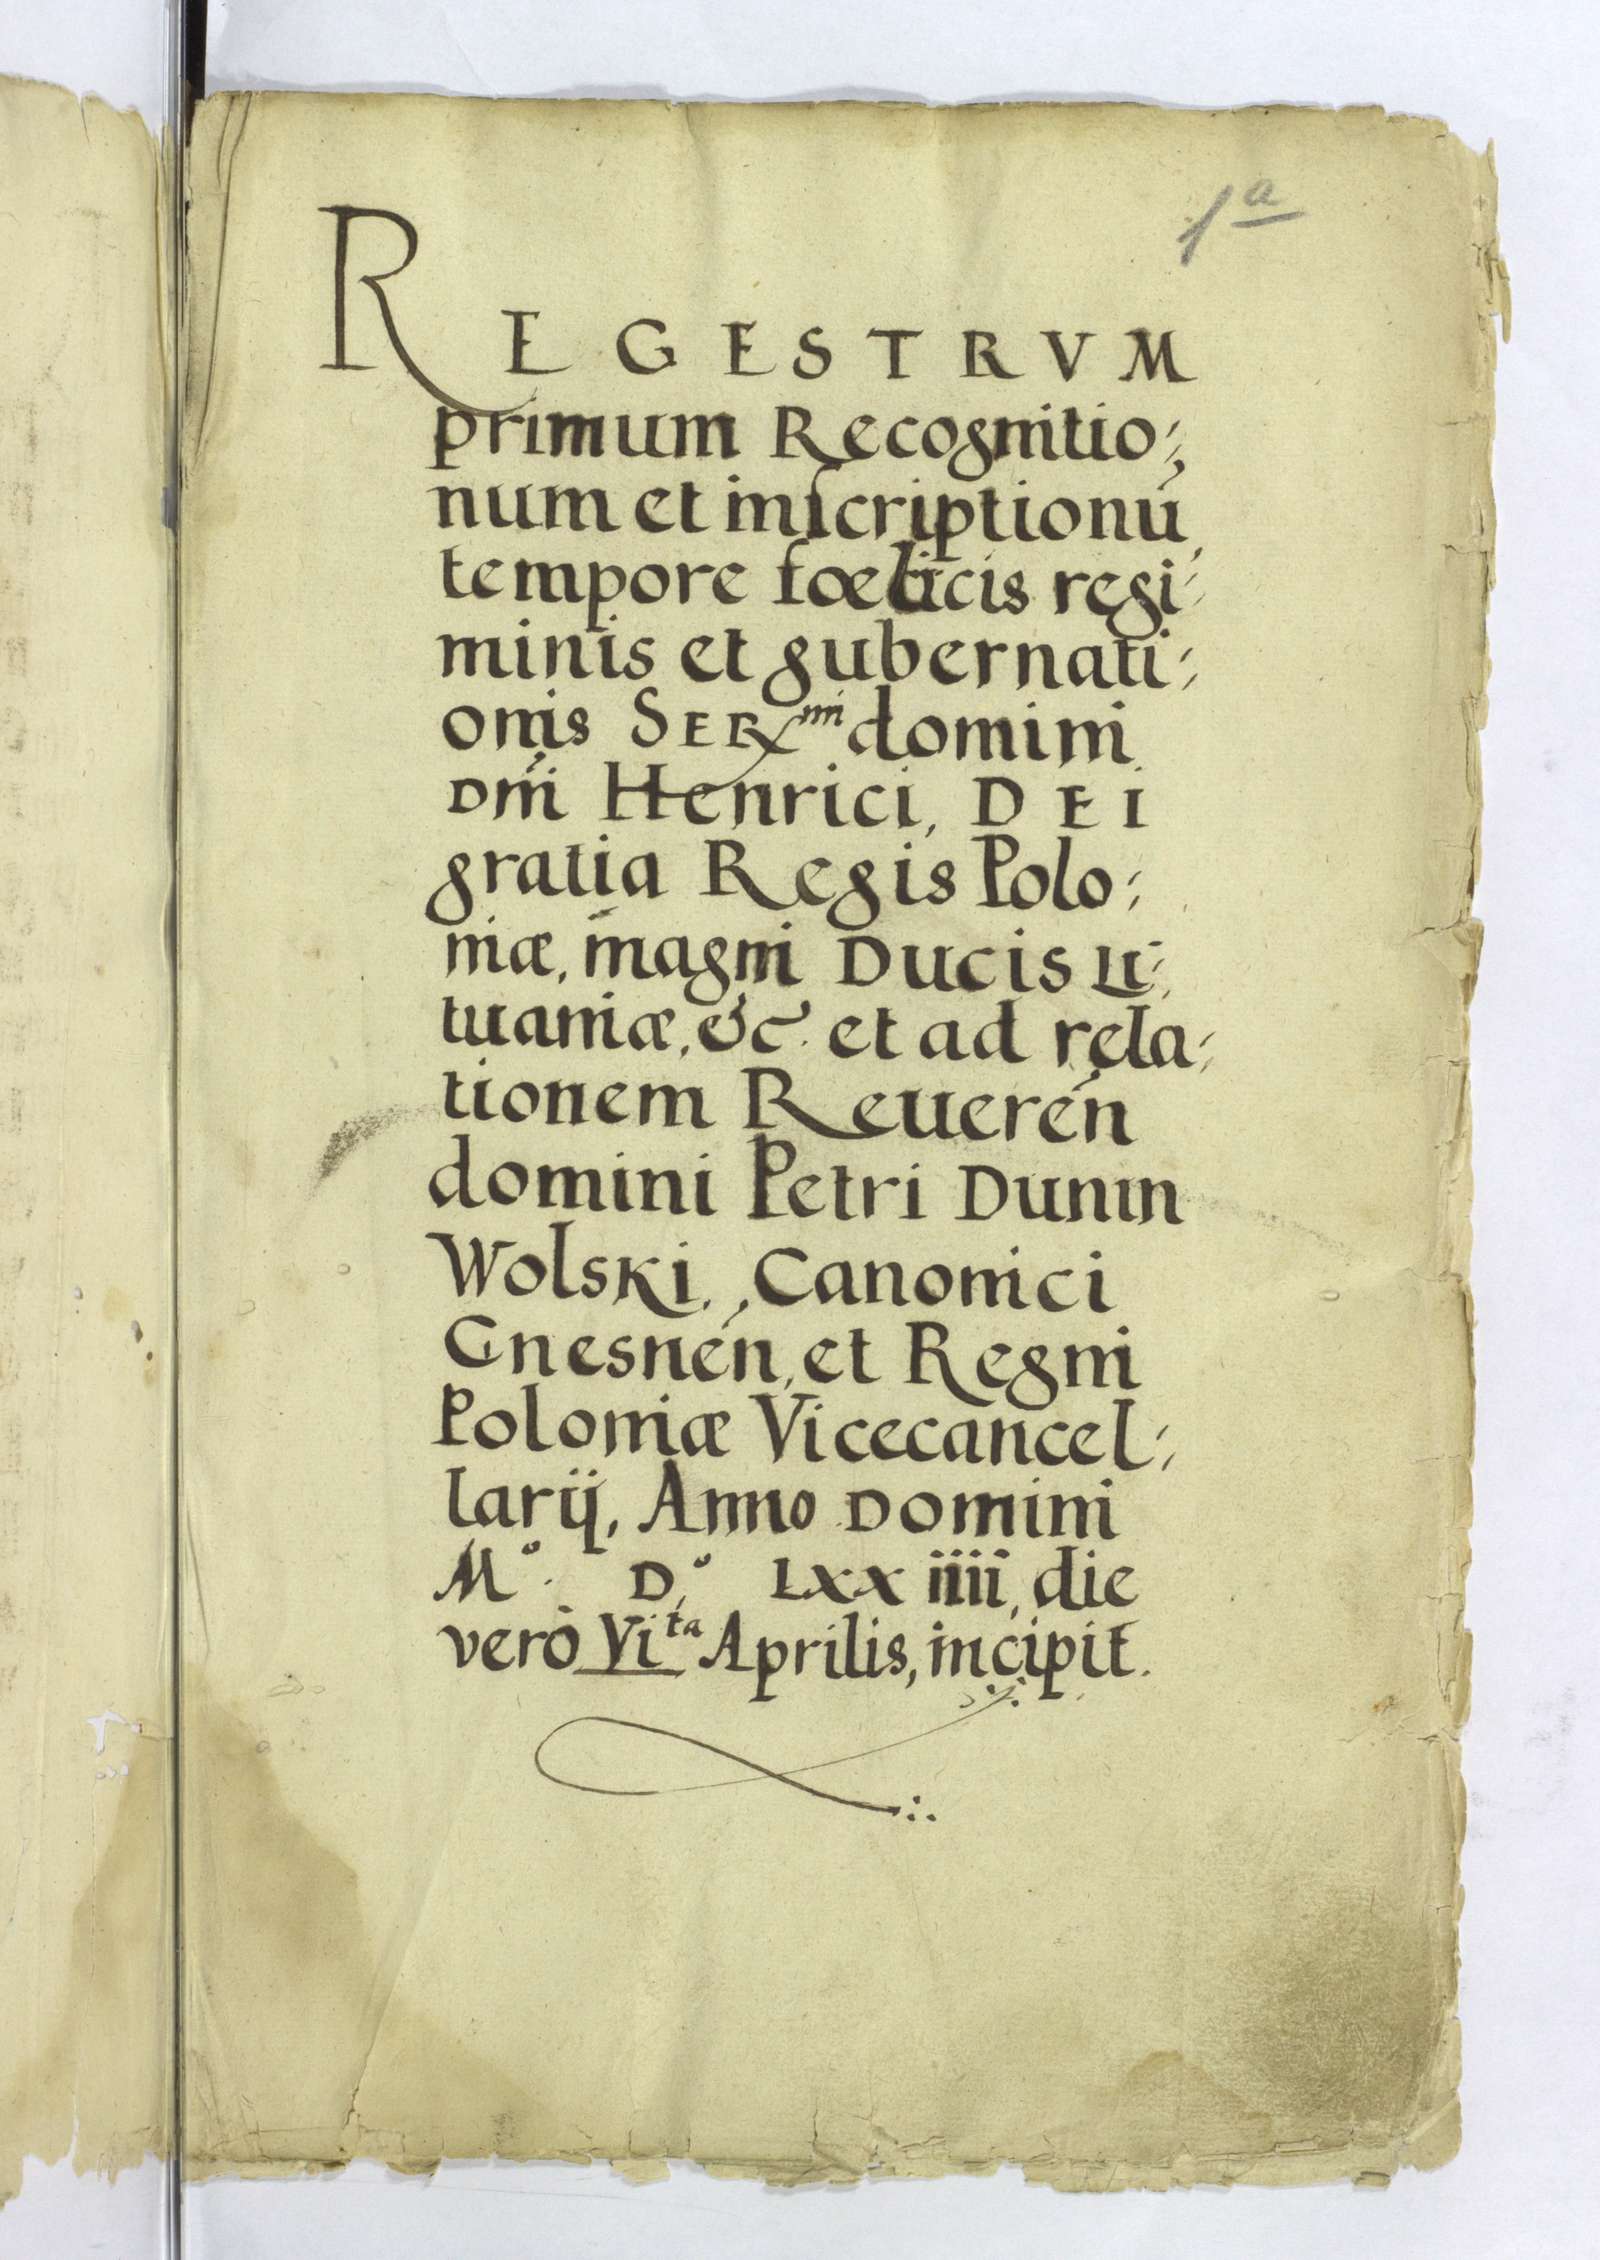 1a
REGESTRVM
primum Recognitio;
num et inſcriptionú
tempore fœlicis regi;
minis et gubernati;
onis SERmi domini
Dńi Henrici, DEI
gratia Regis Polo;
niæ, magni Ducis Li;
tuaniæ, &c. et ad rela;
tionem Reuereń
domini Petri Dunin
Wolski, Canonici
Gnesneń, et Regni
Poloniæ Vicecancel;
larij, Anno Domini
M°. D.° LXXiiii, die
verò Vita Aprilis, incipit.